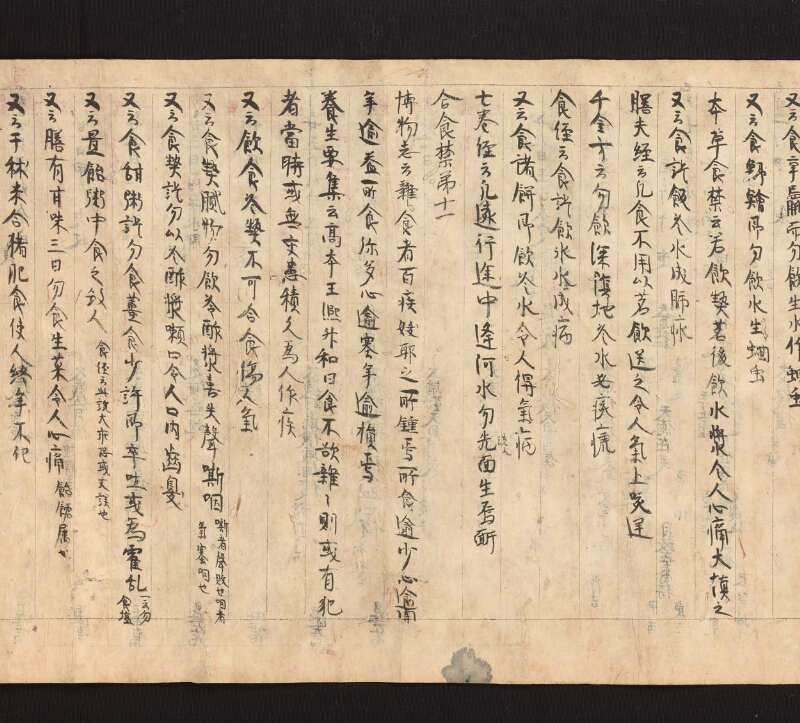 又云食羸而勿飲生水作蛔虫
又云食鯽鱠即勿飲水生蛔虫
本草食禁云若飲熱茗後飲水漿令人心痛大損之
又云食訖飲冷水成肺
膳夫経云凡食不用以茗飲送之令人氣上咳逆
千金方云勿飲深陰地冷水必瘧
食经云食訖飲氷水成病
又云食諸餅即飲冷水令人得氣病
七巻経云凡遠行途中逢河水勿先洗面生烏䵟
合食禁第十一
博物志云雜食者百疾妖耶之所鍾焉所食逾少心逾開
年逾益所食弥多心逾塞年逾損焉
養生要集云高本王熙叔和曰食不欲雜々則或有犯
者當時或無交患積久為人作疾
又云飲食冷熱不可合食傷人氣
又云食熱膩物勿飲冷酢漿喜失聲嘶咽 嘶者聲敗也咽者
氣塞咽也
又云食熱訖勿以冷酢漿嗽口令人口内齒臭
又云食甜粥訖勿食薑食少許即卒吐或為霍乱 一云勿
食塩
又云置飴粥中食之殺人 食经云
又云膳有甘味三日勿食生菜令人心痛 飴餹属也
又云干秫米合猪肥食使人終年不化